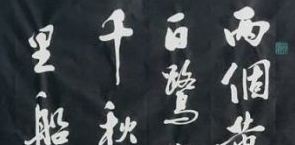 兩個黄
白鷺
千秋
里船